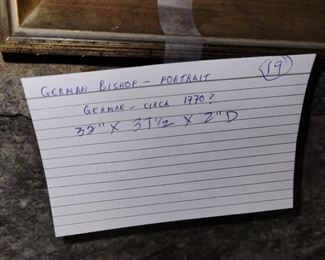 GERMAN BISHOP - PORTRAIT 19
GERMAN - CIRCA 1770?
32" X 37 1/2 X 2" D